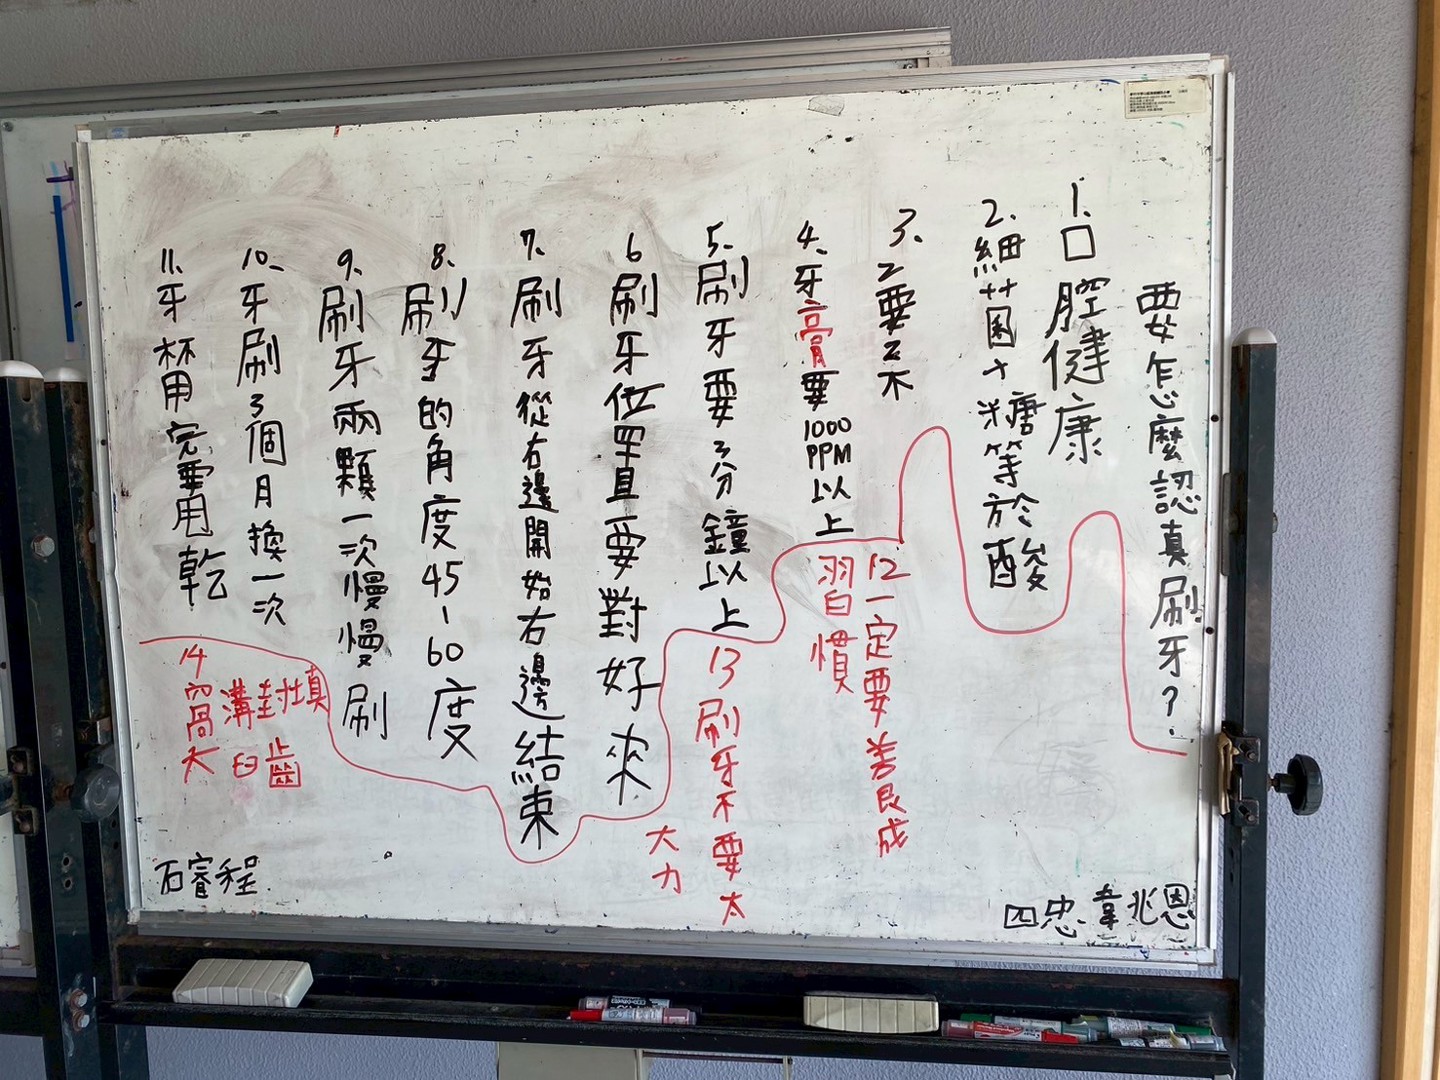 要怎麼認真刷牙?
1.口腔健康
2.細菌+糖等於酸
3.2要2不
4.牙膏要1000PPM以上
5.刷牙要3分鐘以上
6刷牙位置要對好來
7.刷牙從右邊開始右邊結束
8.刷牙的角度45-60度
9.刷牙兩顆一次慢慢刷
10.牙刷3個月換一次
11.牙杯用完要用乾
12一定要善良成
習慣
13刷牙不要太
大力
14窩
溝封填
大臼齒
四忠.韋兆恩
石睿程